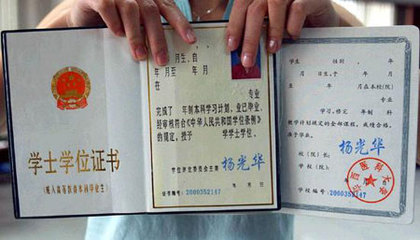 学士学位证书
(成人高等教育本科毕业生)
生,自
年 月至 年 月
在
专业
完成了 年制本科学习计划,业已毕业,
经审核符合《中华人民共和国学位条例》
的规定,授予 学学士学位。
学位评定委员会主席 杨光华
证书编号:2000352147
年 月 日
学生 性别 , 年
月 日生,于 年
月至 年 月在本校(院)
专业
学习,修完 年制 科
教学计划规定的全部课程,成绩合格,
准予毕业。
校(院)长: 杨光华
学校(院):
学校编号:2000352147